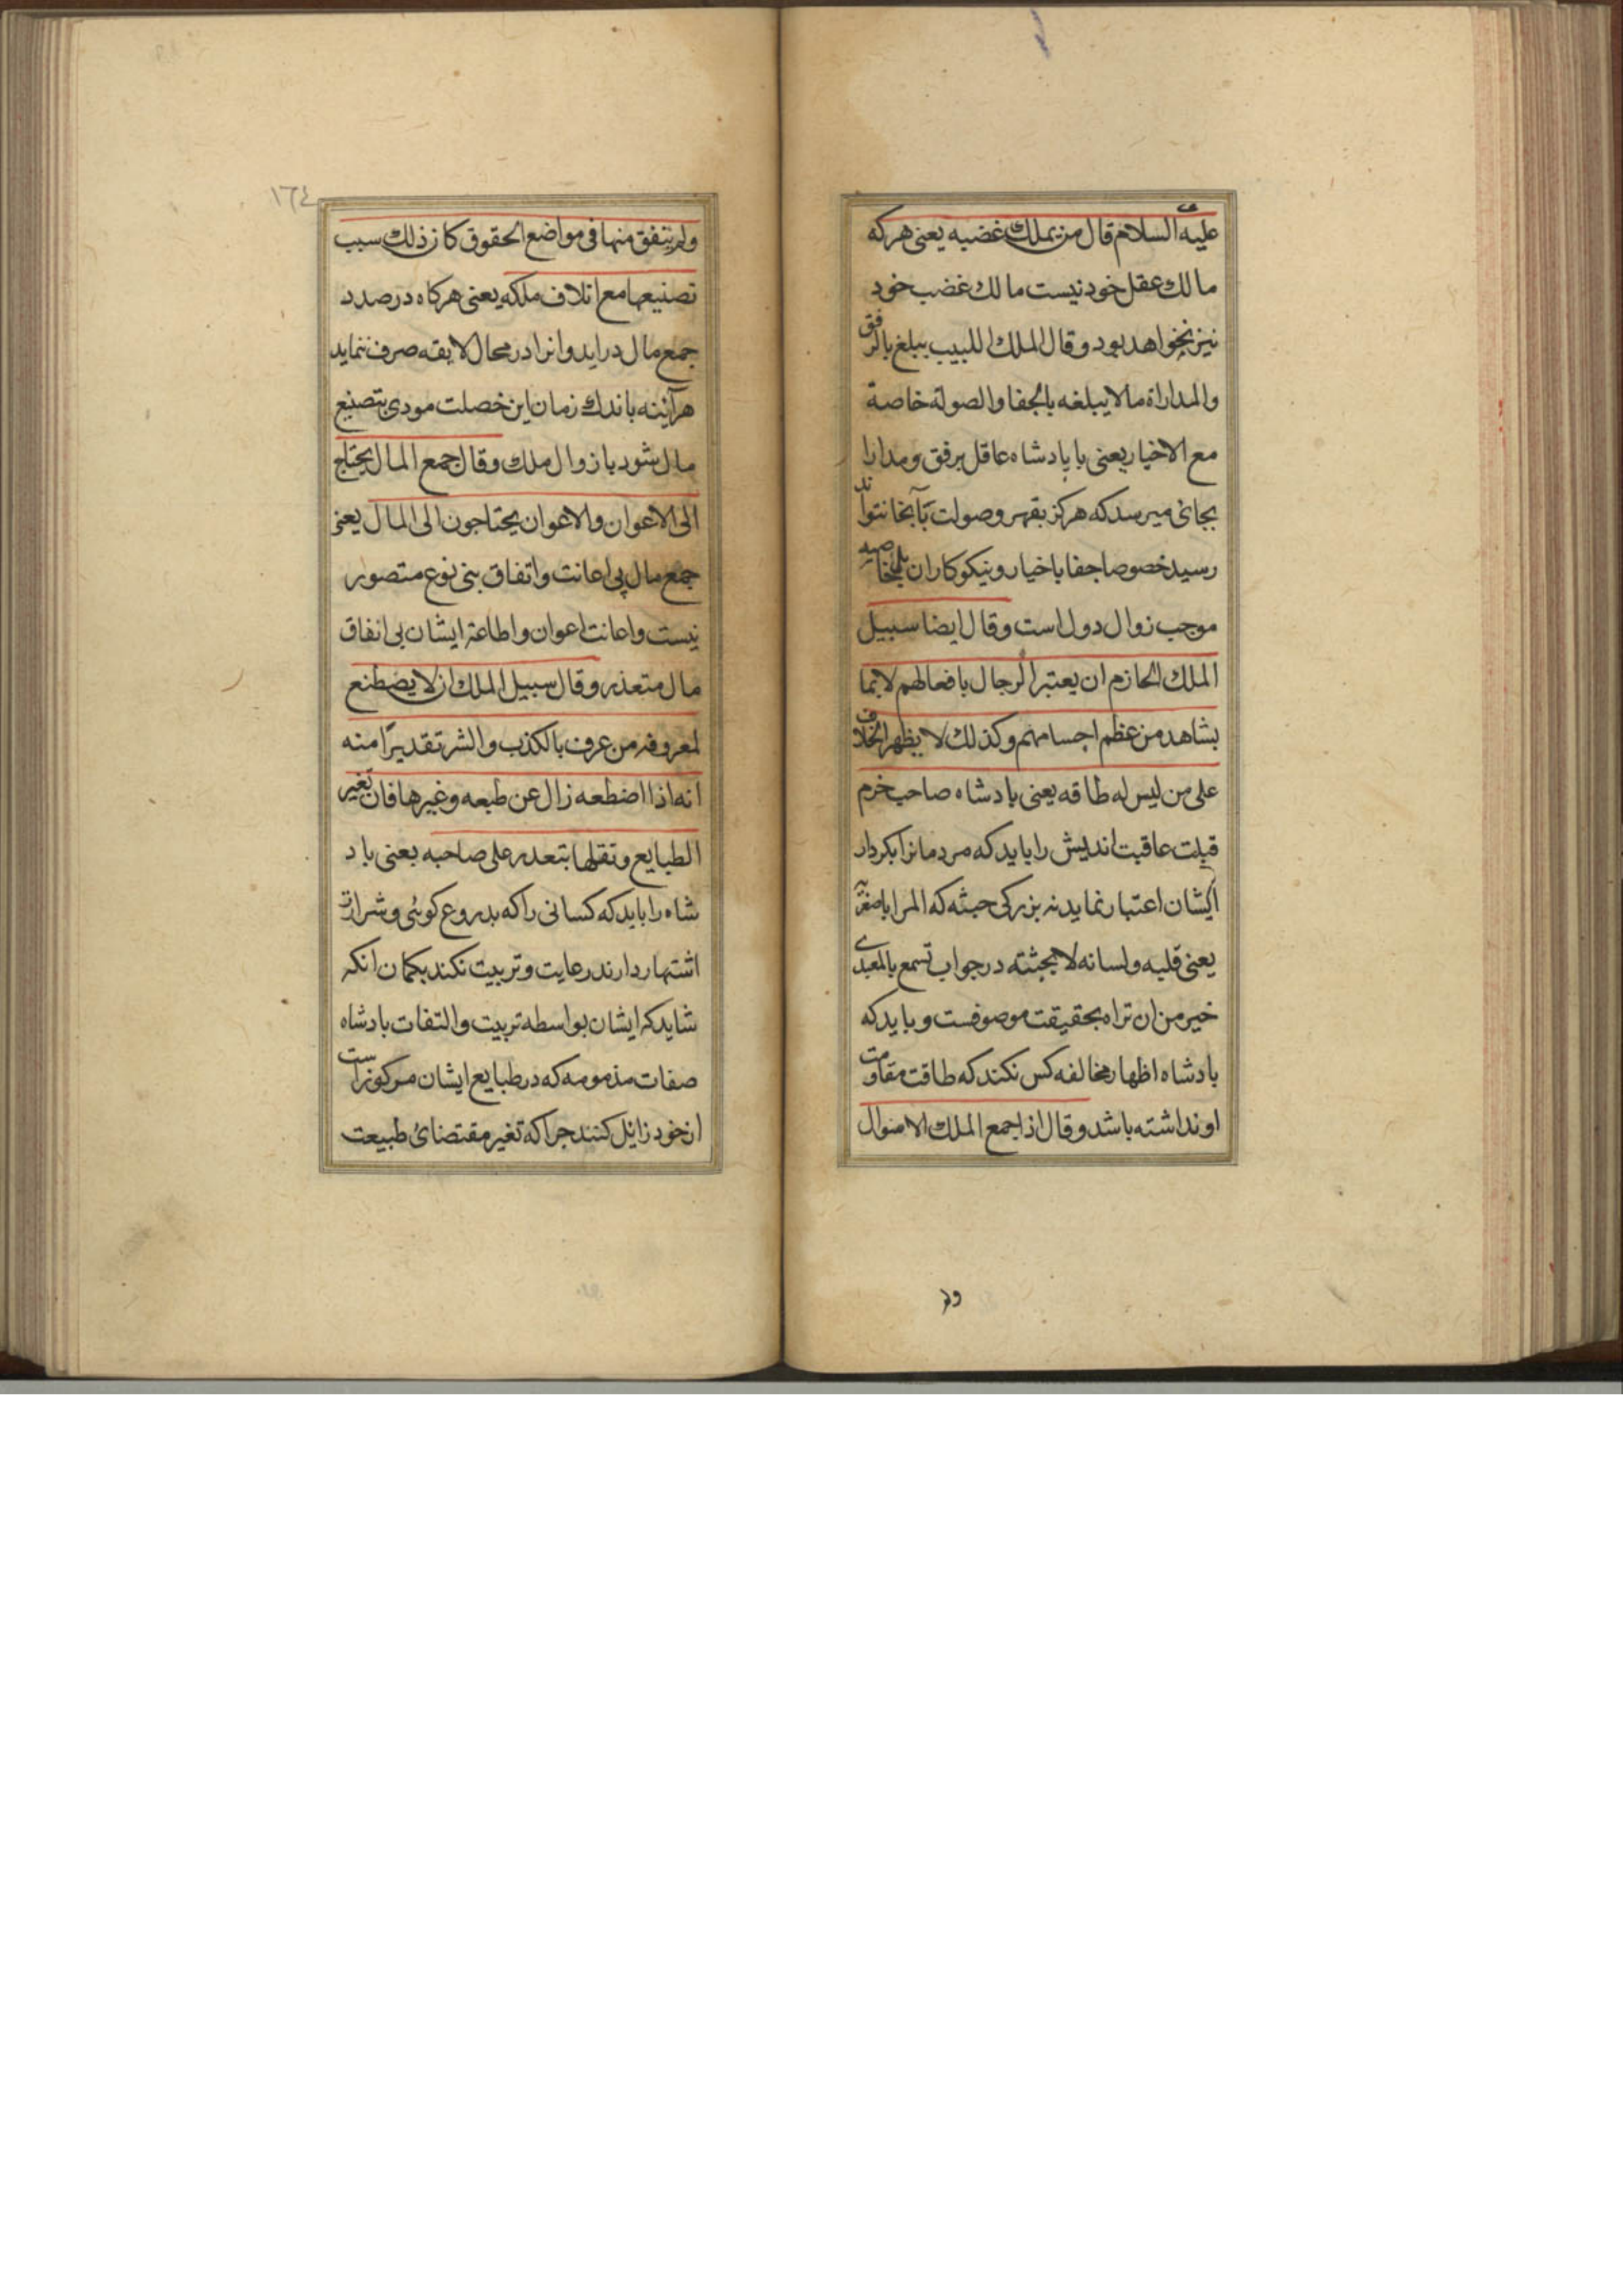 علیه السلام قال من یملك غضبه یعنی هرکه
مالك عقل خود نیست مالك غضب خود
نیز نخواهد بود وقال الملك اللبیب یبلغ بالرفق
والمداراة مالا یبلغه بالجفا والصولة خاصة
مع الاخیار یعنی با پادشاه عاقل برفق ومدارا
بجائی میرسد که هرکز بقهر وصولت بآنجا نتواند
رسید خصوصا جفا باخیار ونیکوکاران
موجب زوال دول است وقال ایضا سبیل
الملك الحازم ان یعتبر الرجال بافعالهم لا بما
یشاهد من عظم اجسامهم وکذلك لا یظهر الخلاف
علی من لیس له طاقه یعنی پادشاه صاحب خرم
عاقبت اندیش را باید که مردمانرا بکردار
ایشان اعتبار نماید نه بزرکی جثه که المرا باصغریه
یعنی قلبه ولسانه لا بجثته در جواب تسمع بالمعیدی
خیر من ان تراه بحقیقت موصوفست وباید که
پادشاه اظهار مخالفه کس نکند که طاقت مقاومت
او نداشته باشد وقال اذا جمع الملك الاموال
ولم
١٦٤
ولم ینفق منها فی مواضع الحقوق کان ذلك سبب
تضییعها مع اتلاف ملکه یعنی هرکاه در صدد
جمع مال دراید وانرا در محال لایقه صرف ننماید
هرآینه باندك زمان این خصلت مودی بتضیع
مال شود با زوال ملك وقال جمع المال یحتاج
الی الاعوان والاعوان یحتاجون الی المال یعنی
جمع مال بی اعانت واتفاق بنی نوع متصور
نیست واعانت اعوان واطاعة ایشان بی انفاق
مال متعذر وقال سبیل الملك ان لا یضطنع
لمعروفه من عرف بالکذب والشر تقدیرا منه
انه اذا اضطعه زال عن طبعه وغیرها فان تغیر
الطبایع ونقلها یتعذر علی صاحبه یعنی پاد
شاه را باید که کسانی را که بدروغ کوئی وشرارت
اشتهار دارند رعایت وتربیت نکند بکمان انکه
شاید که ایشان بواسطه تربیت والتفات پادشاه
صفات مذمومه که در طبایع ایشان مرکوز است
از خود زائل کنند چرا که تغیر مقتضای طبیعت